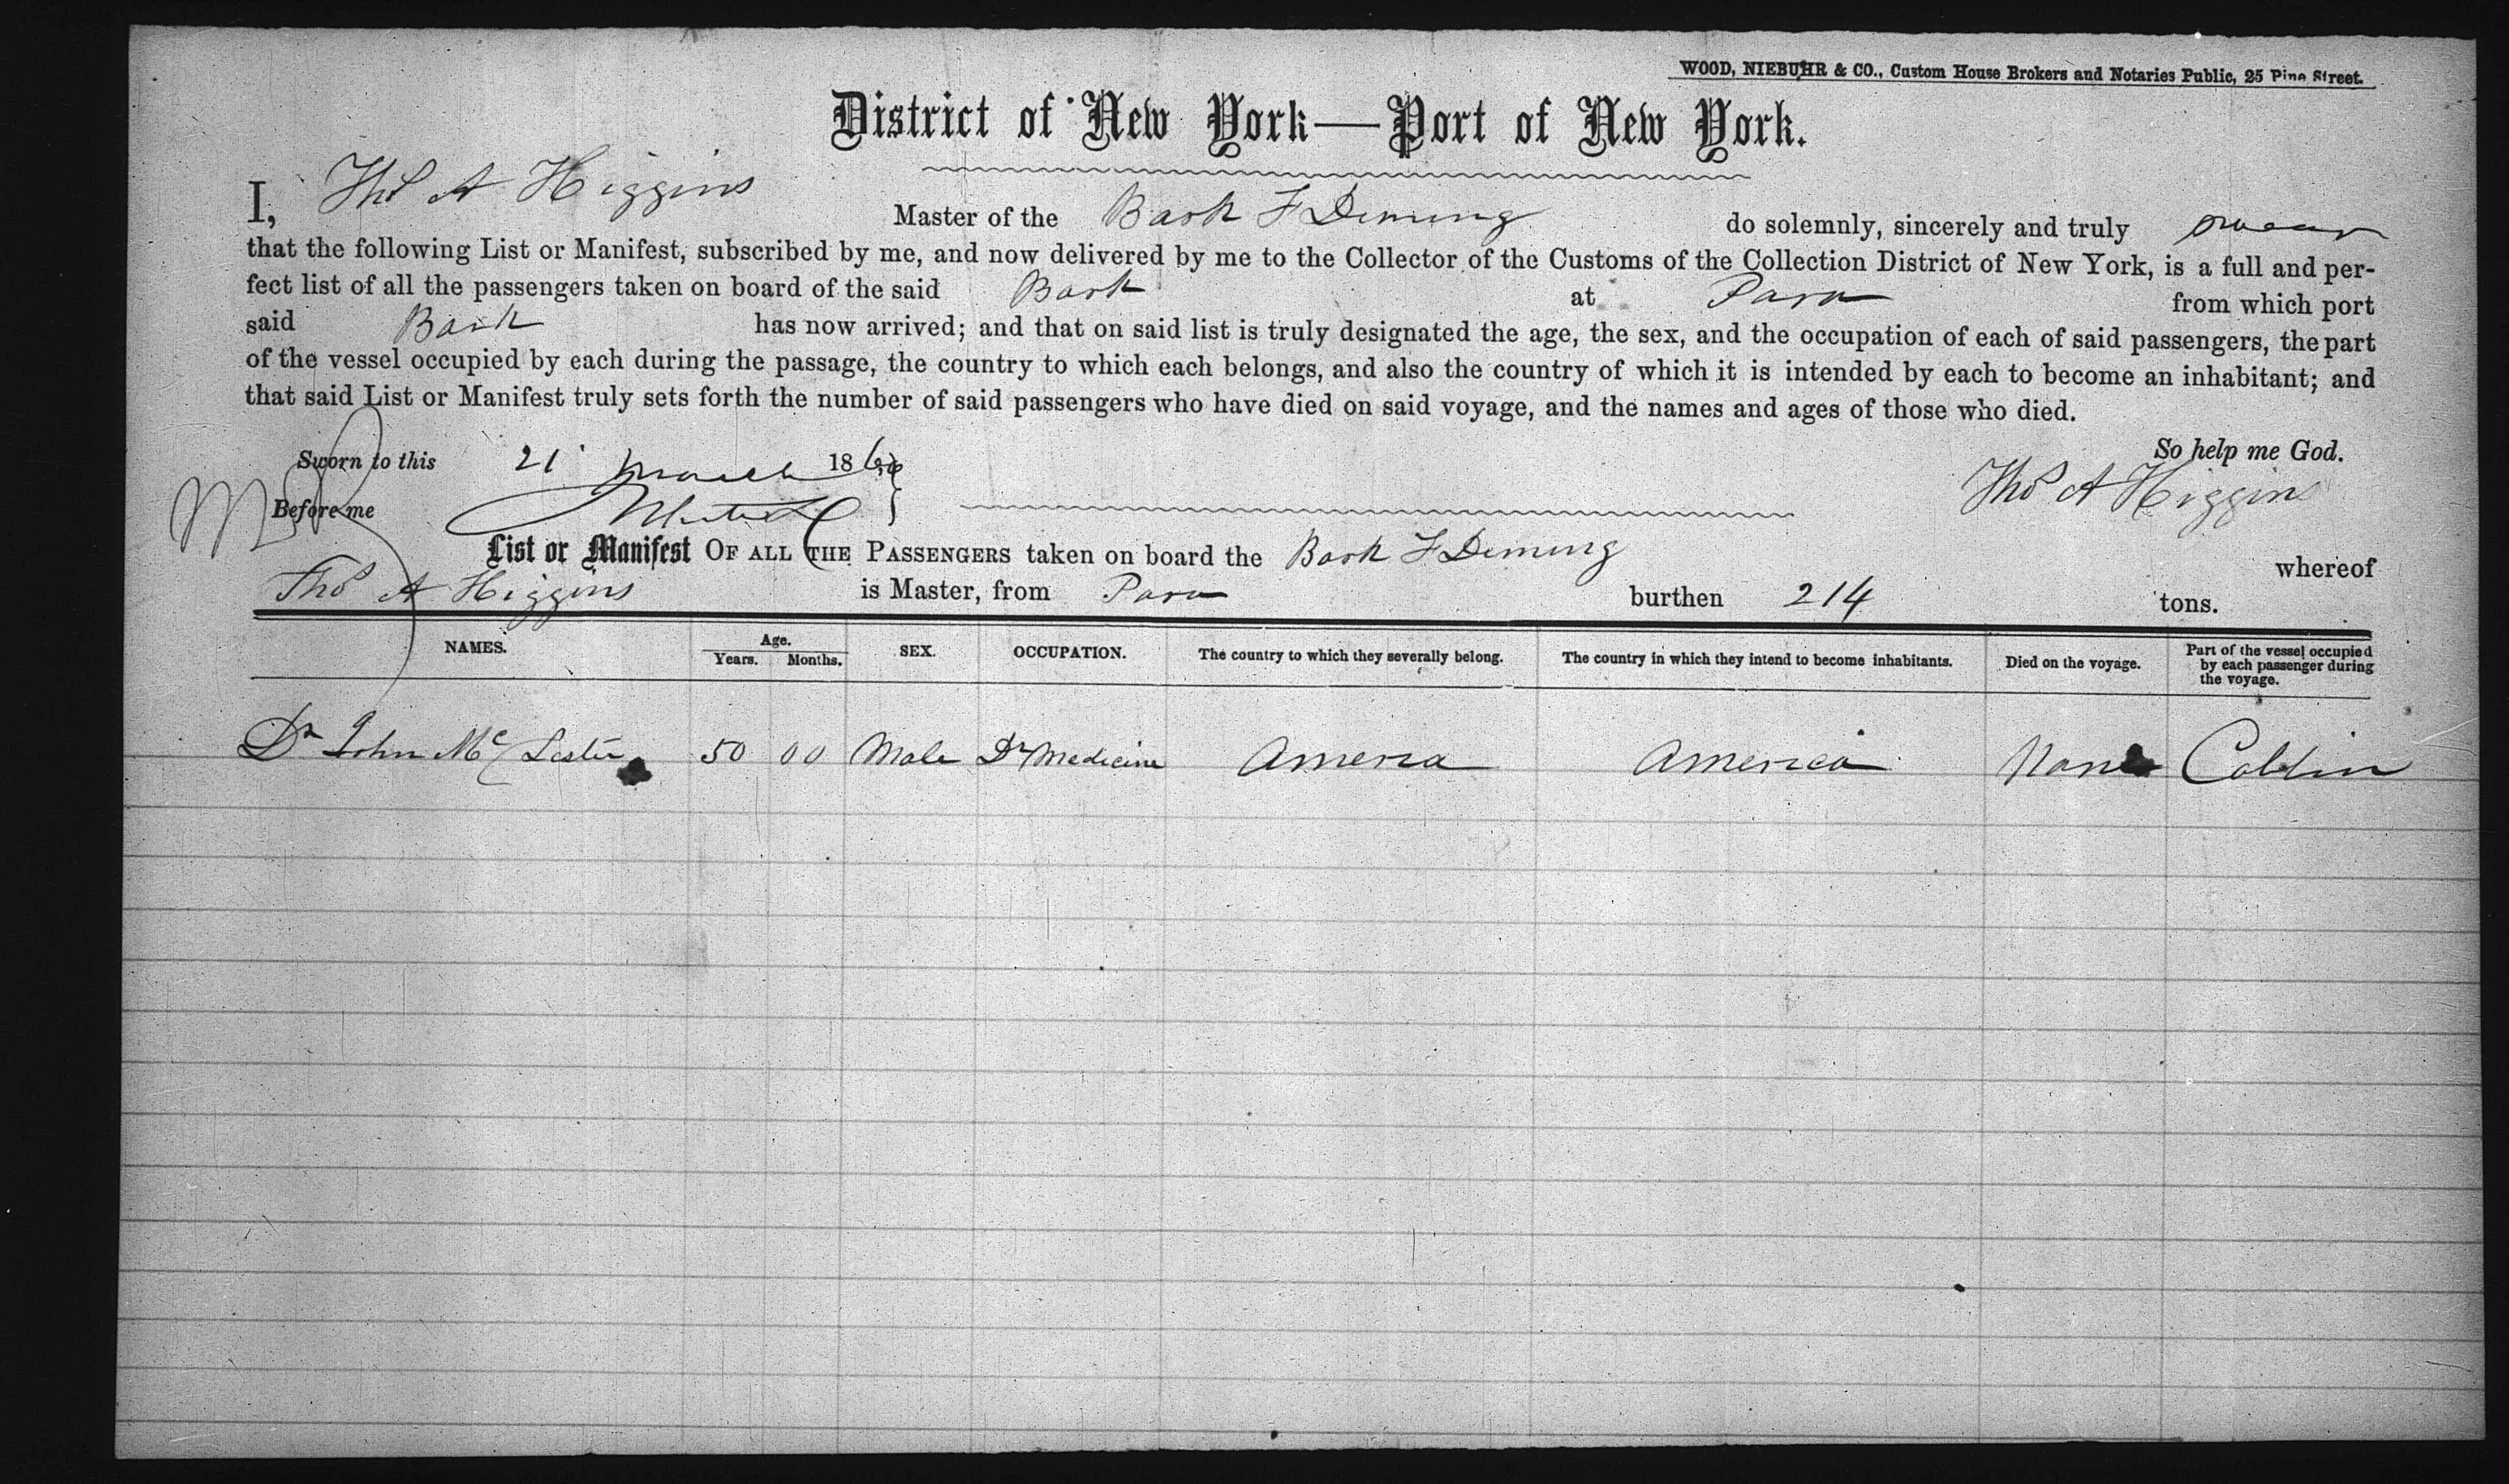 WOOD, NIEBUHR & CO., Custom House Brokers and Notaries Public, 25 Pine Street.
District of New York—Port of New York.
I, Thos A Higgins Master of the Bark F Deming do solemnly, sincerely and truly swear
that the following List or Manifest, subscribed by me, and now delivered by me to the Collector of the Customs of the Collection District of New York, is a full and per-
fect list of all the passengers taken on board of the said Bark at Para from which port
said Bark has now arrived; and that on said list is truly designated the age, the sex, and the occupation of each of said passengers, the part
of the vessel occupied by each during the passage, the country to which each belongs, and also the country of which it is intended by each to become an inhabitant; and
that said List or Manifest truly sets forth the number of said passengers who have died on said voyage, and the names and ages of those who died.
So help me God.
Sworn to this 21 March 186
Thos A Higgins
Before me
List or Manifest OF ALL THE PASSENGERS taken on board the Bark F Deming whereof
Thos A Higgins is Master, from Para burthen 214 tons.
NAMES. Age. Years. Months. SEX. OCCUPATION. The country to which they severally belong. The country in which they intend to become inhabitants. Died on the voyage. Part of the vessel occupied by each passenger during the voyage.
Dr John Mc Lester 50 00 Male Dr Medicine America America None Cabbin